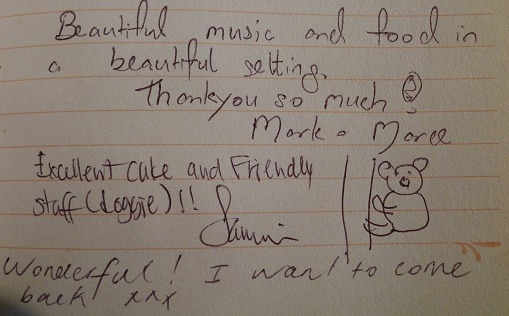 Beautiful music and food in
a beautiful setting.
Thankyou so much!
Mark & Maree
Excellent cake and Friendly
staff (doggie)!!
Wonderful! I want to come
back xxx